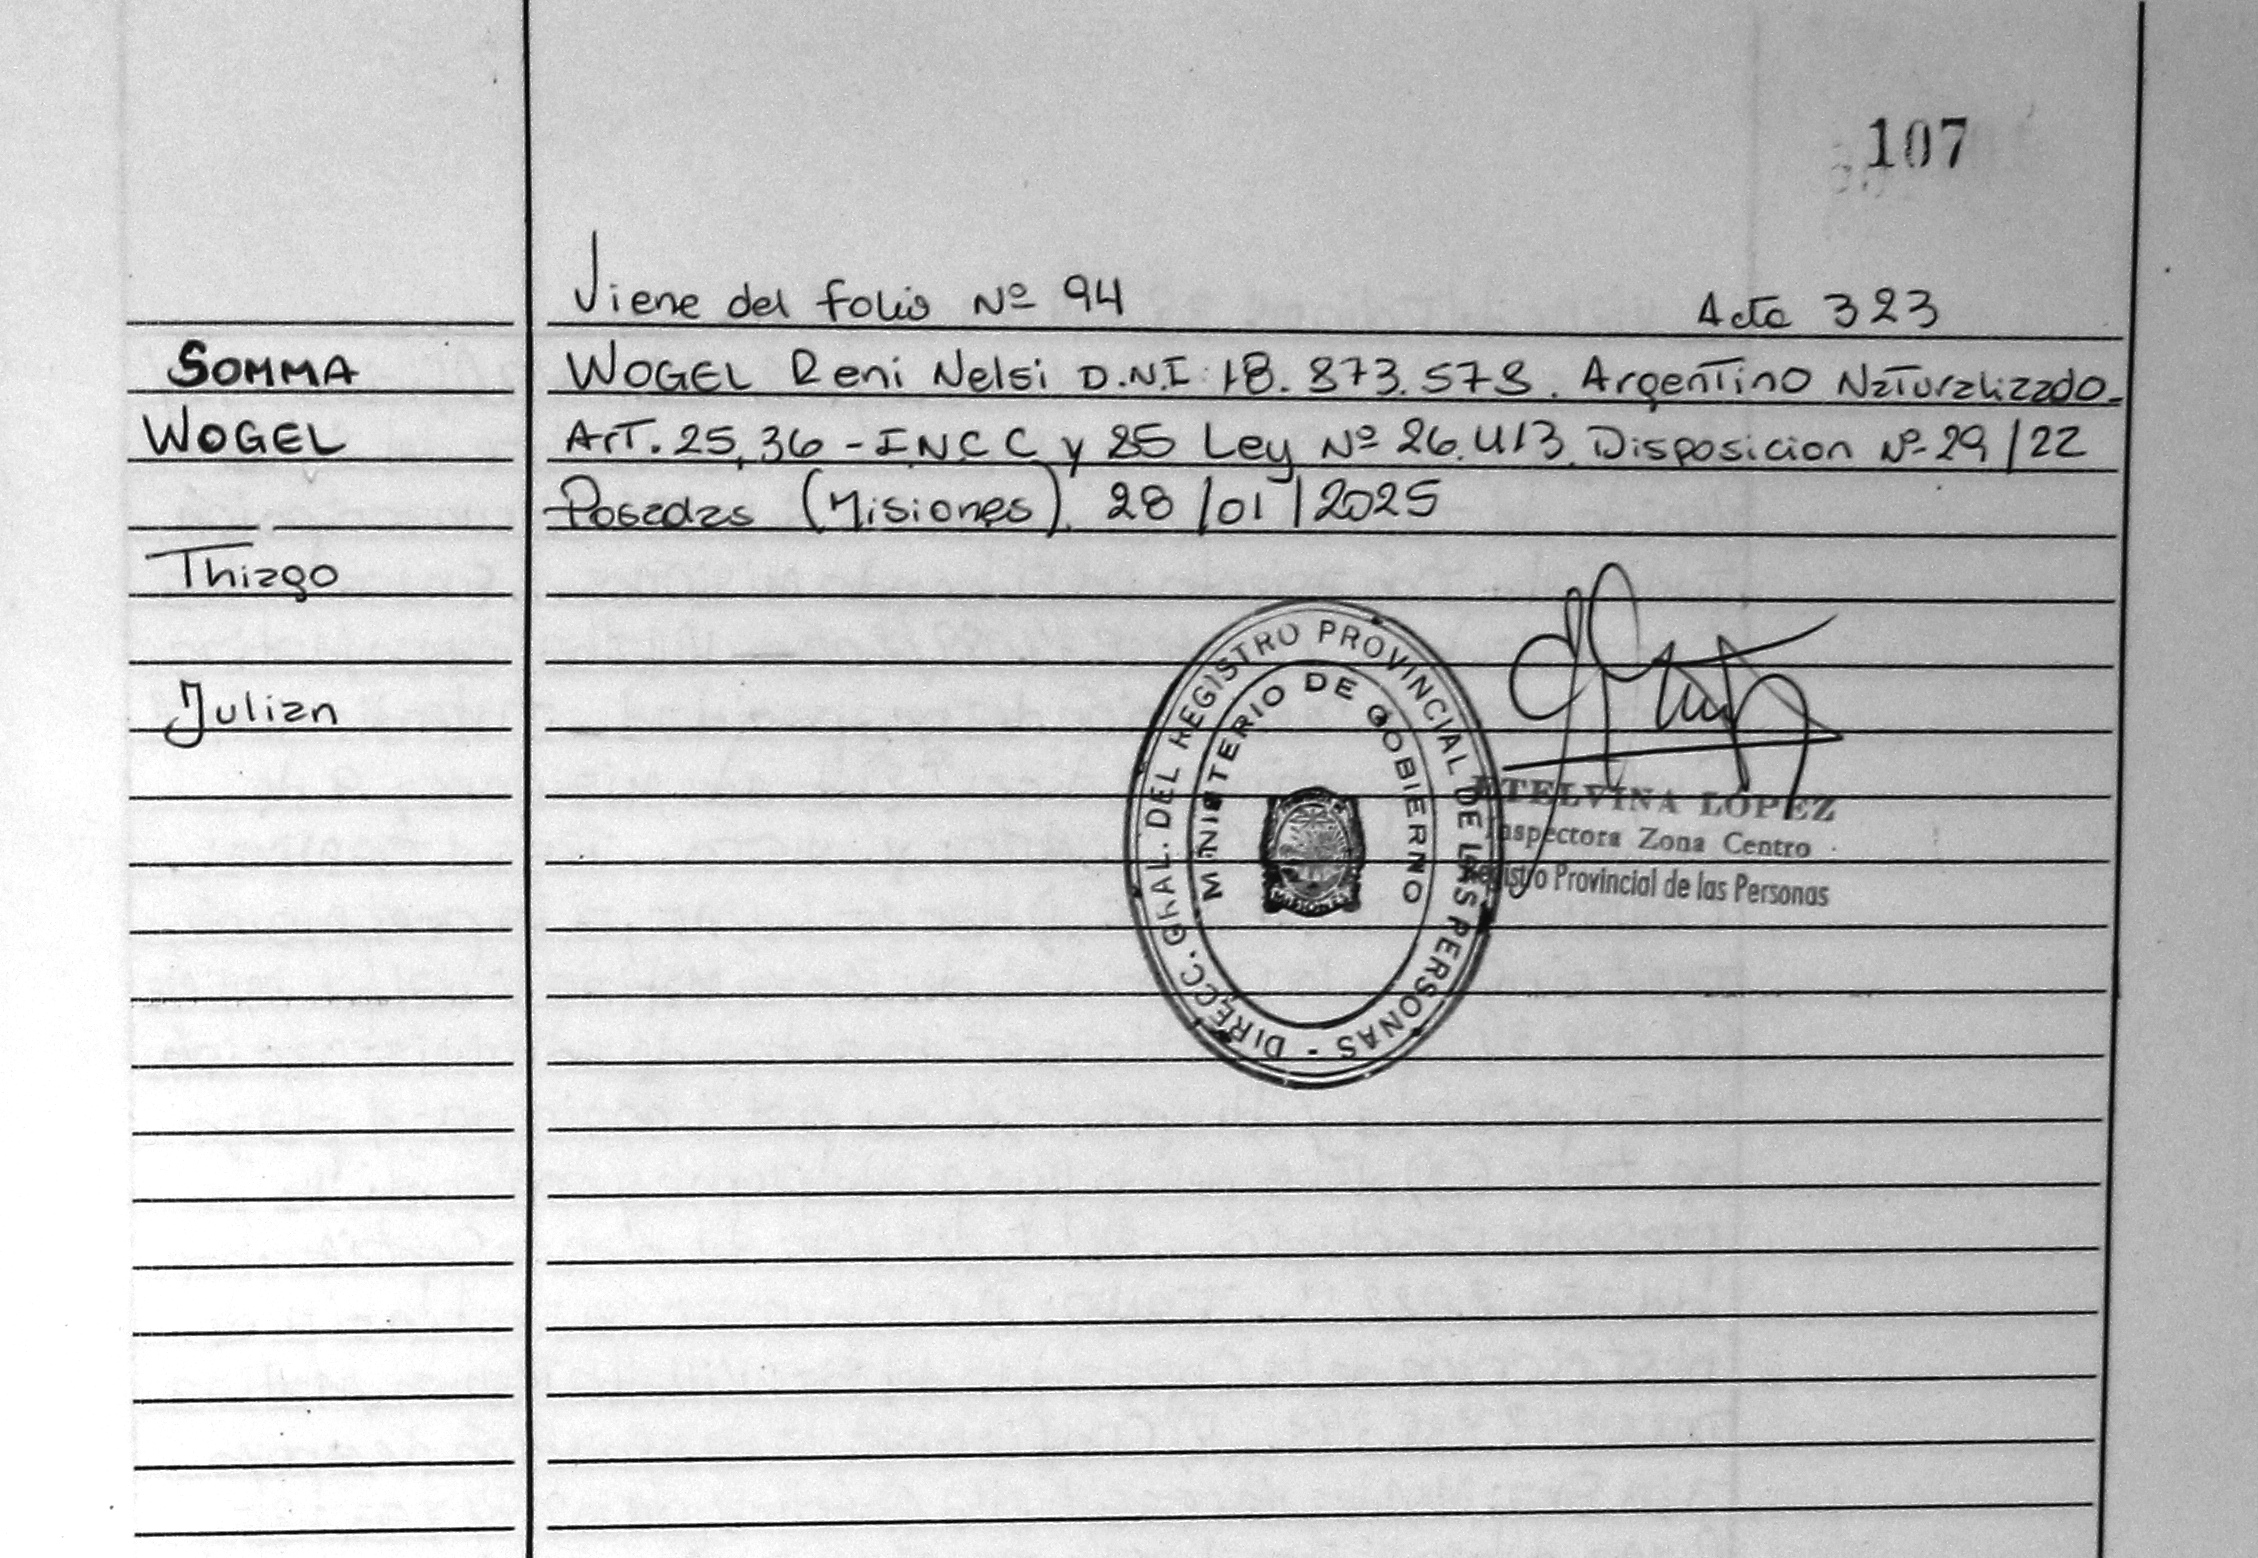 107
Viene del folio Nº 94 Acta 323
SOMMA
WOGEL Reni Nelsi D.N.I: 18.873.578. Argentino Naturalizado.
WOGEL
Art. 25, 36 - INC C y 85 Ley Nº 26.413. Disposicion Nº 29/22
Posadas (Misiones). 28/01/2025
Thiago
Julian
DIRECC. GRAL. DEL REGISTRO PROVINCIAL DE LAS PERSONAS -
MINISTERIO DE GOBIERNO
MISIONES
ETELVINA LÓPEZ
Inspectora Zona Centro
Registro Provincial de las Personas